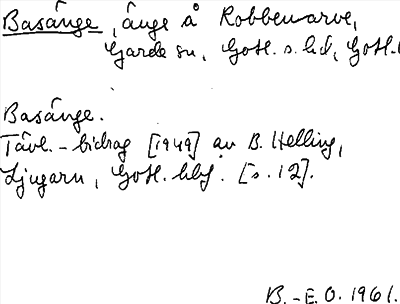 Basänge, änge å Robbenarve,
Garde sn, Gotl. s. hd, Gotl.
Basänge.
Tävl.-bidrag [1949] av B. Helling,
Ljugarn, Gotl. hbf. [s. 12].
B.-E.O. 1961.